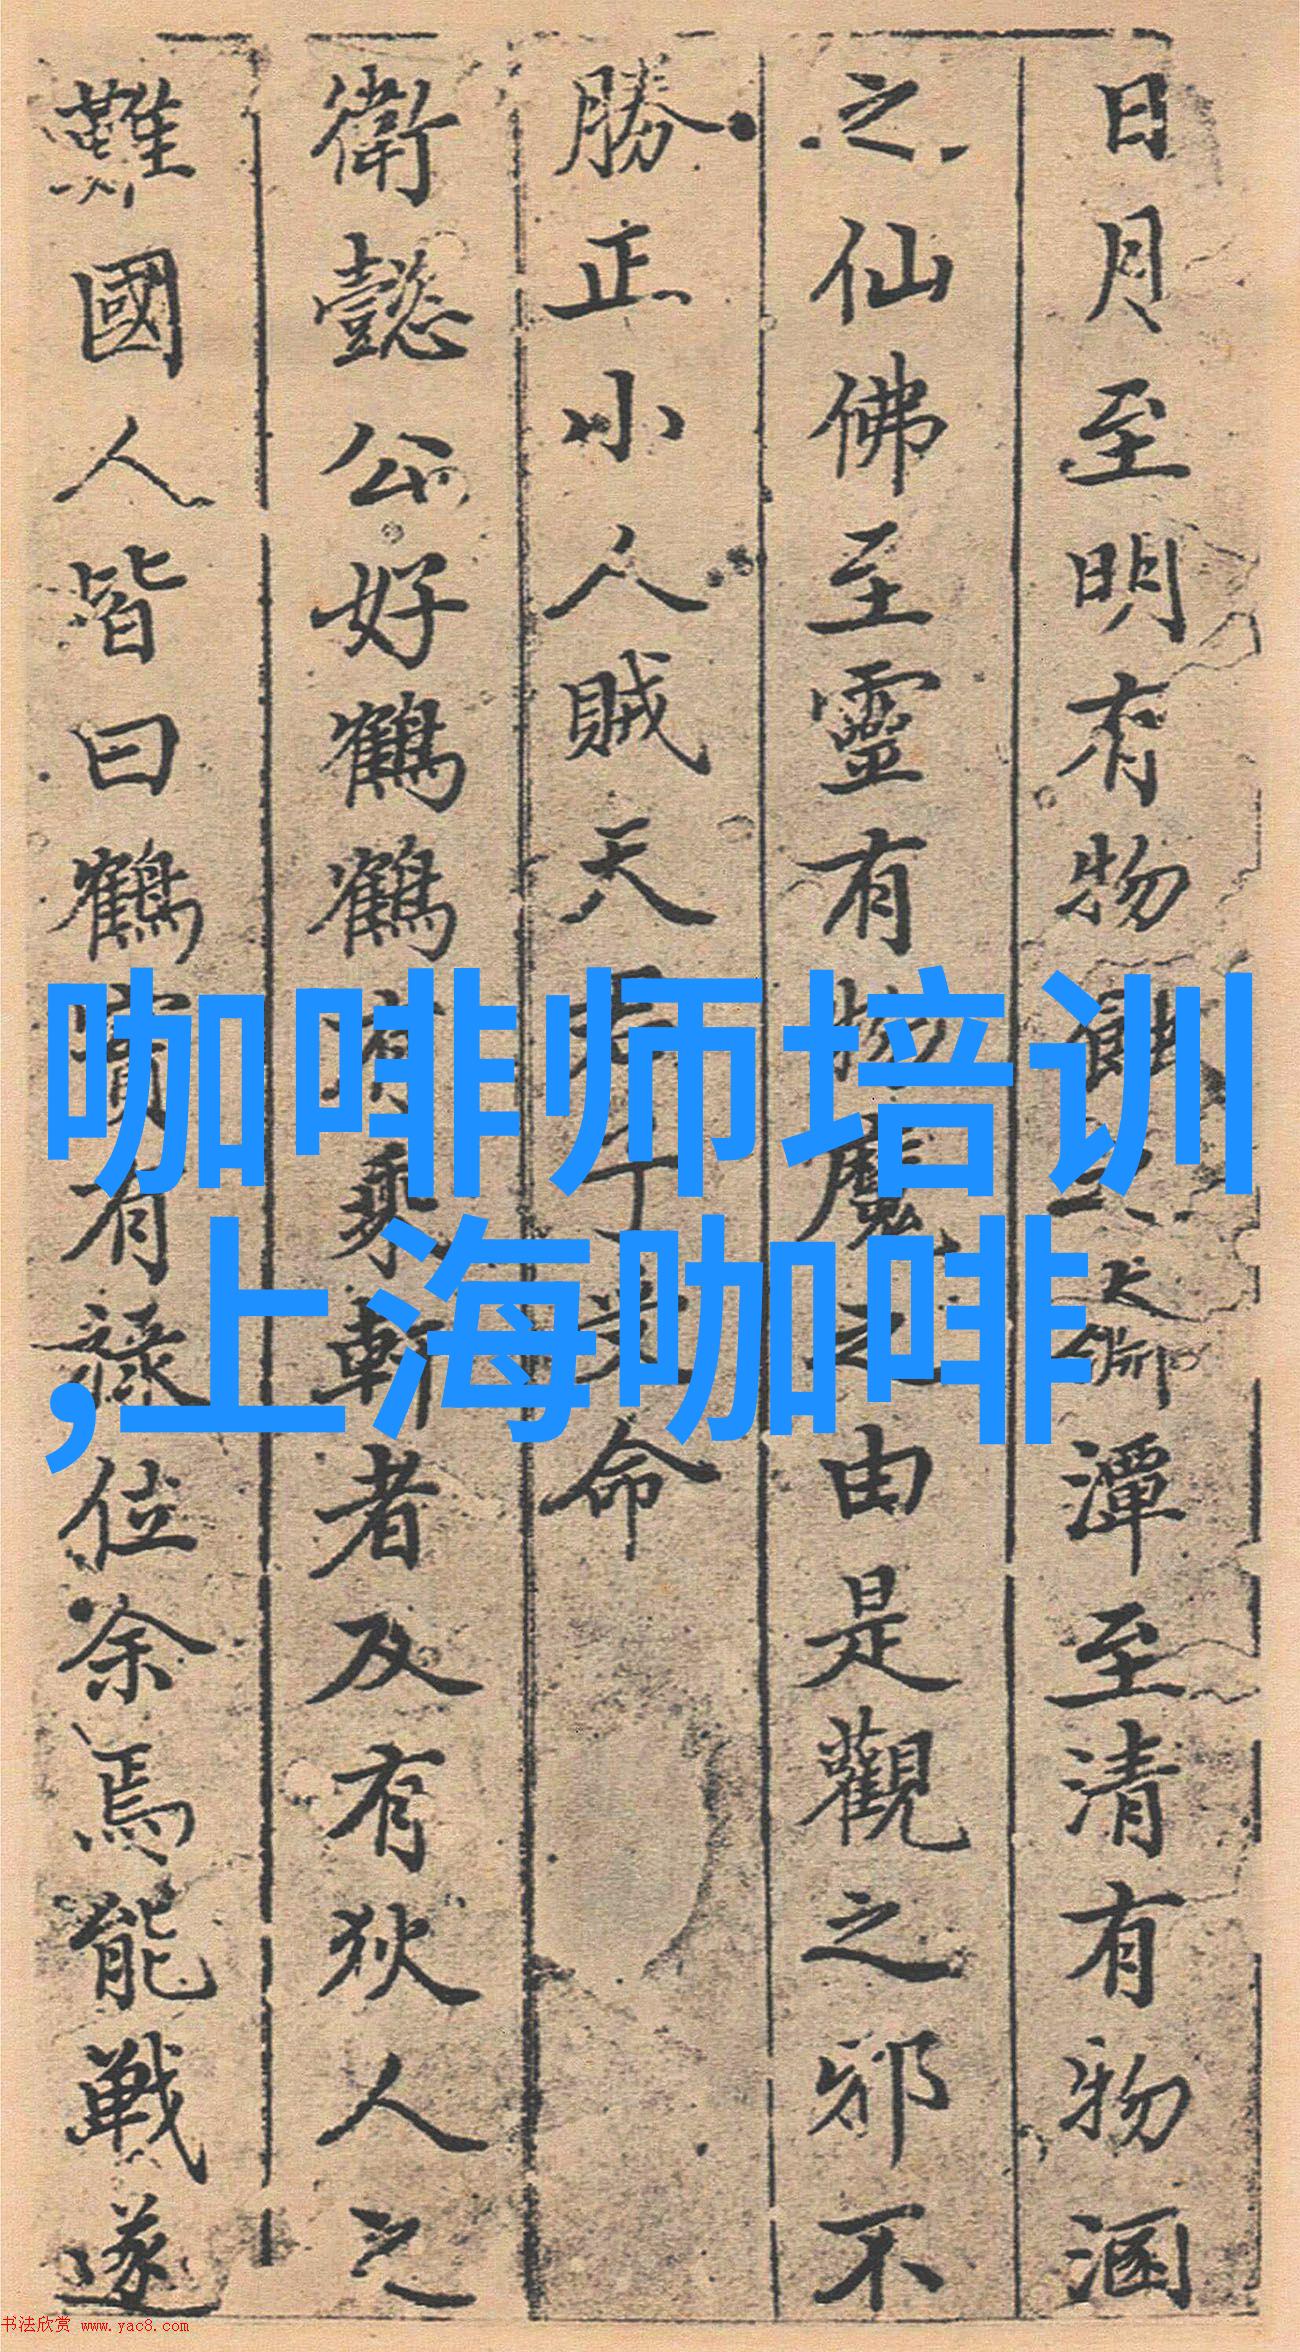 日月至明有物蝕之大淵潭至清有物涵
之仙佛至靈有物魔之由是觀之邪不
勝正小人賊天君子受命
衛懿公好鶴鶴有乘軒者及有狄人之
難國人皆曰鶴實有祿位余焉能戰遂
咖啡师培训
,上海咖啡
书法欣赏 www.yac8.com